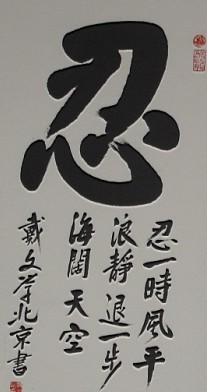 忍
忍一時風平
浪靜退一步
海闊天空
戴文孝北京書